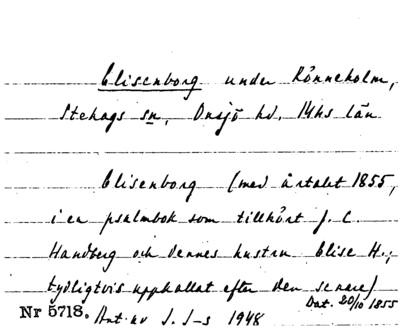 Elisenborg under Rönneholm,
Stehags sn, Onsjö hd, Mhs län
Elisenborg (med årtalet 1855,
i en psalmbok som tillhört J. C.
Handberg och dennes hustru Elise H.;
tydligtvis uppkallat efter den senare)
Dat. 20/10 1855
Nr 5718. Ant. av S. S-s 1948